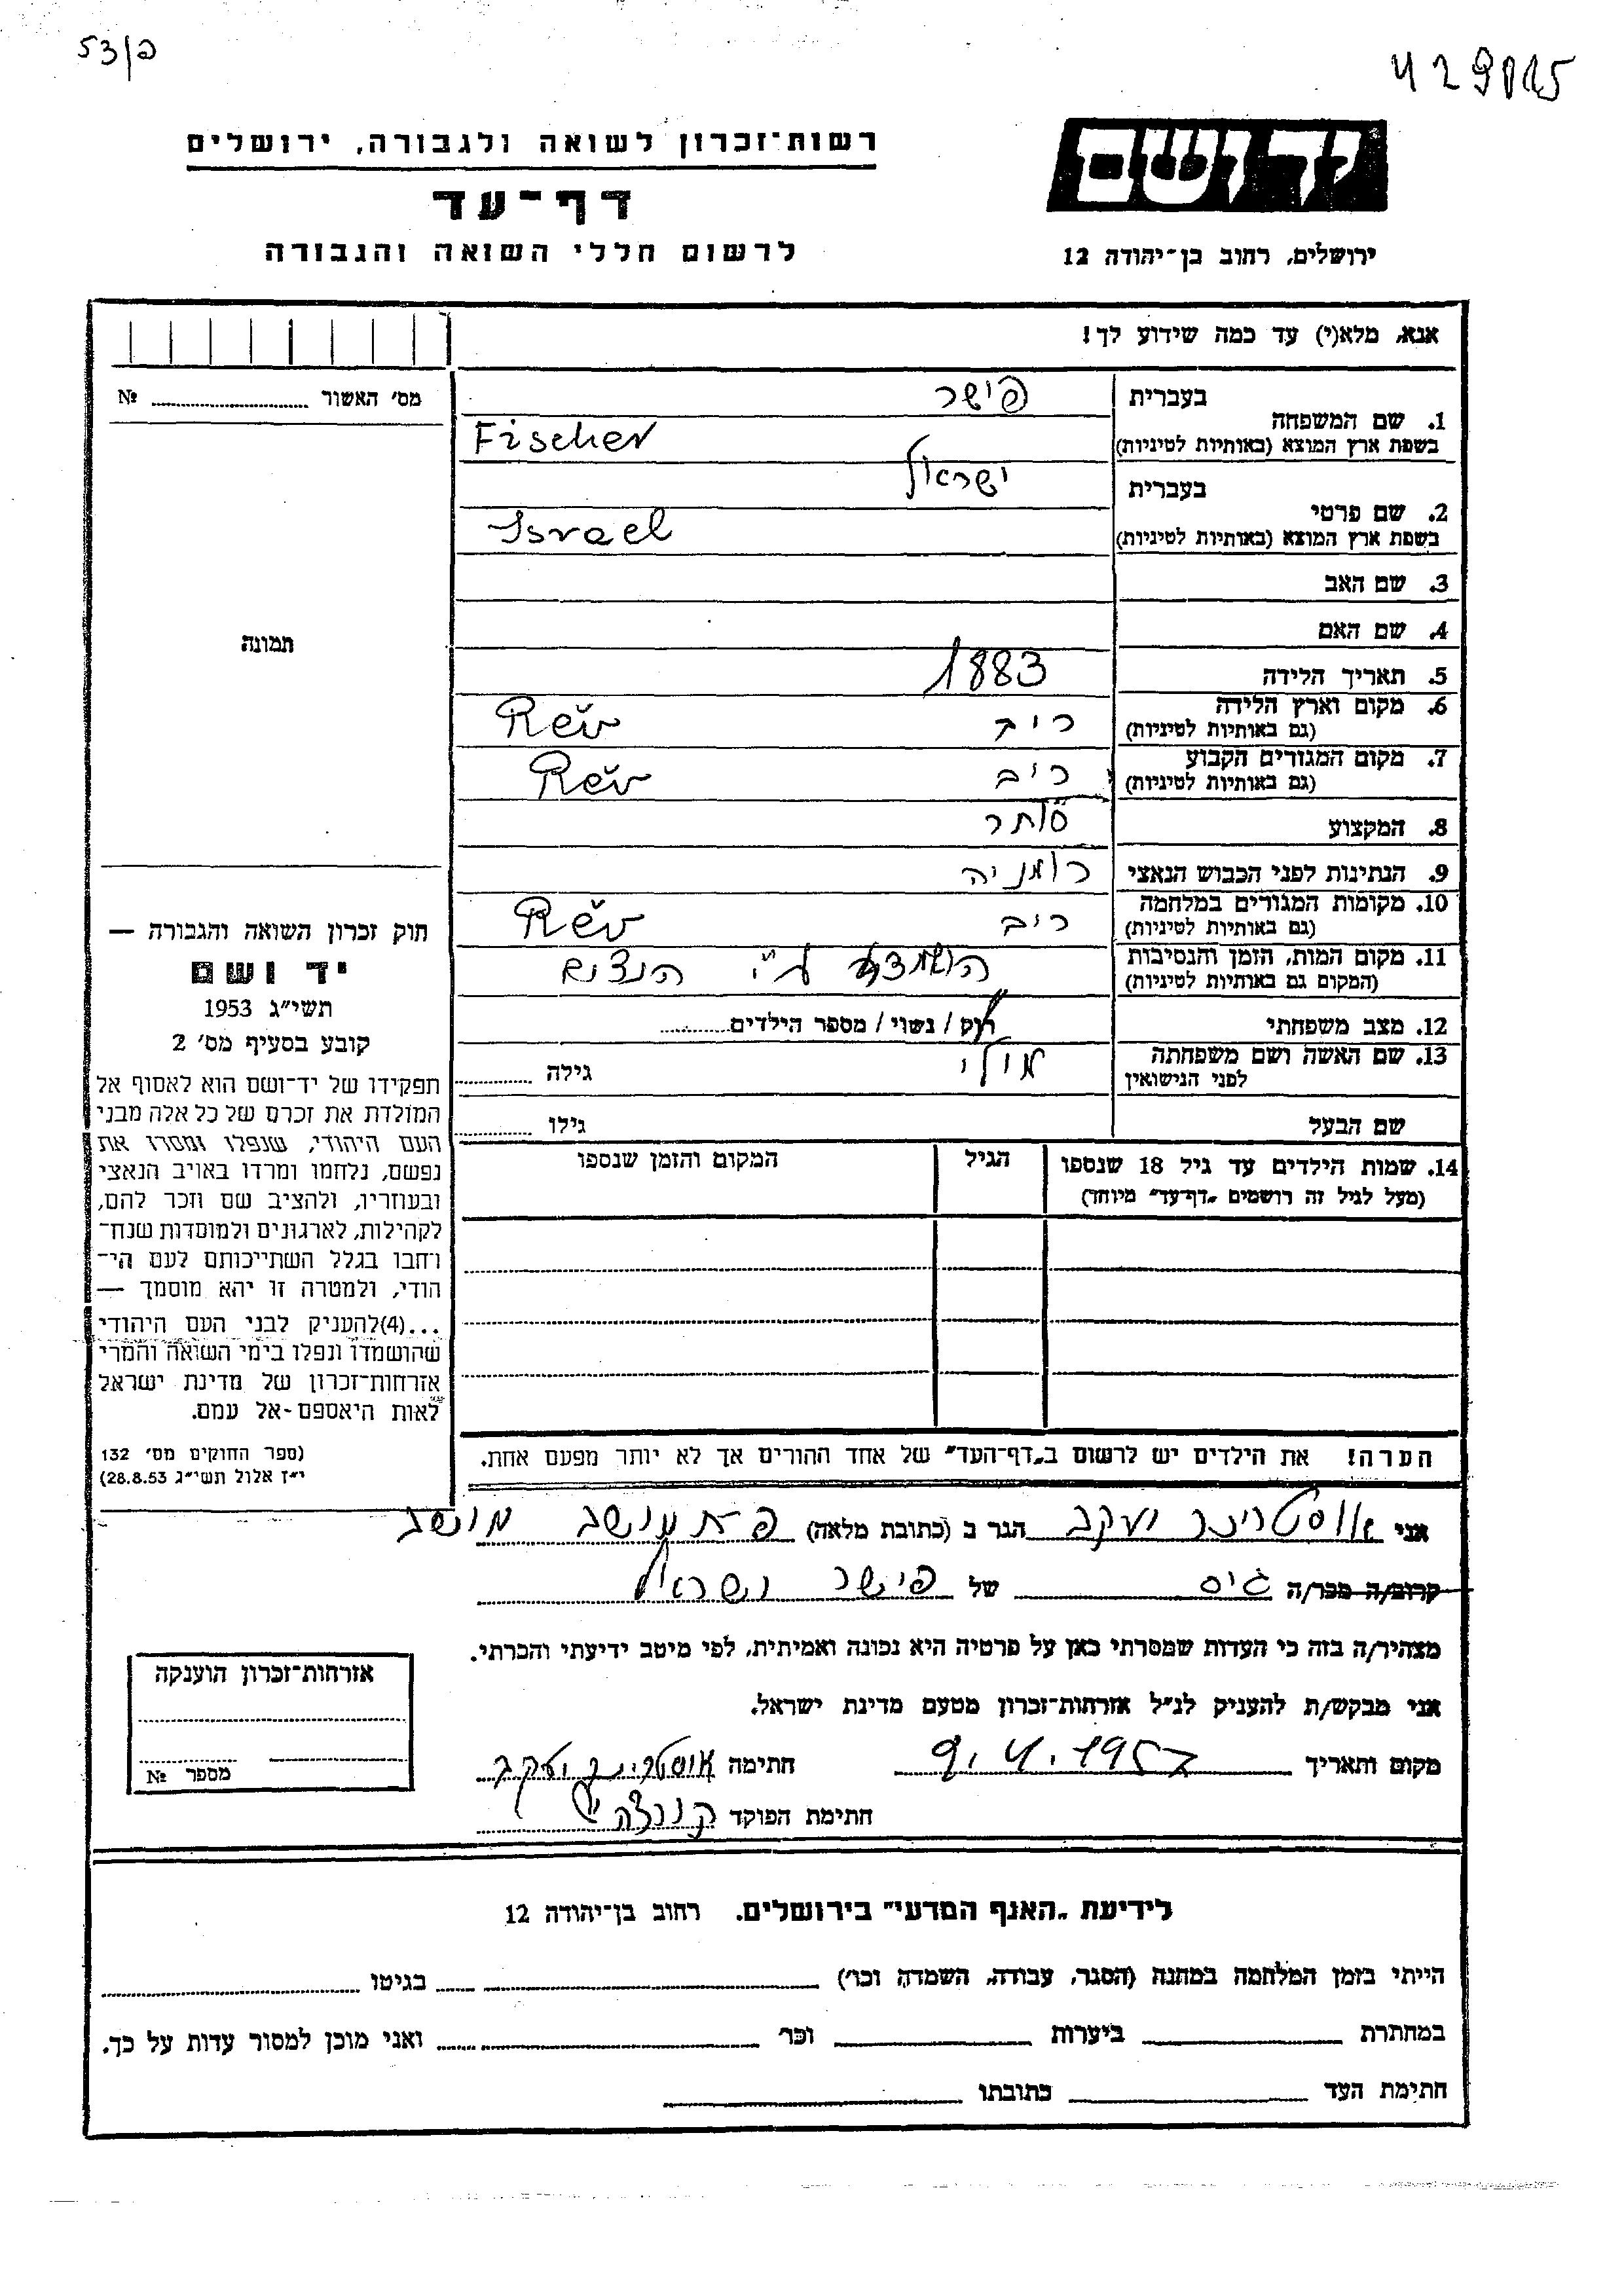 פ/53
429015
יד ושם
רשות־זכרון לשואה ולגבורה, ירושלים
דף־עד
לרשום חללי השואה והגבורה
ירושלים, רחוב בן־יהודה 12
אנא, מלא(י) עד כמה שידוע לך!
מס׳ האשור № 
בעברית פישר
1. שם המשפחה
בשפת ארץ המוצא (באותיות לטיניות) Fischer
בעברית ישראל
2. שם פרטי
בשפת ארץ המוצא (באותיות לטיניות) Israel
3. שם האב
4. שם האם
5. תאריך הלידה 1883
6. מקום וארץ הלידה
(גם באותיות לטיניות) ריב Rév
7. מקום המגורים הקבוע
(גם באותיות לטיניות) ריב Rév
8. המקצוע סוחר
9. הנתינות לפני הכבוש הנאצי רומניה
10. מקומות המגורים במלחמה
(גם באותיות לטיניות) ריב Rév
11. מקום המות, הזמן והנסיבות
(המקום גם באותיות לטיניות) ע״י הנצים
12. מצב משפחתי רוק / נשוי / מספר הילדים
13. שם האשה ושם משפחתה
לפני הנישואין גילה
שם הבעל גילו
14. שמות הילדים עד גיל 18 שנספו
(מעל לגיל זה רושמים „דף־עד״ מיוחד)
הגיל
המקום והזמן שנספו
הערה! את הילדים יש לרשום ב„דף־העד״ של אחד ההורים אך לא יותר מפעם אחת.
תמונה
חוק זכרון השואה והגבורה —
יד ושם
תשי״ג 1953
קובע בסעיף מס׳ 2
תפקידו של יד־ושם הוא לאסוף אל
המולדת את זכרם של כל אלה מבני
העם היהודי, שנפלו ומסרו את
נפשם, נלחמו ומרדו באויב הנאצי
ובעוזריו, ולהציב שם וזכר להם,
לקהילות, לארגונים ולמוסדות שנח־
רחבו בגלל השתייכותם לעם הי־
הודי, ולמטרה זו יהא מוסמך —
...(4)להעניק לבני העם היהודי
שהושמדו ונפלו בימי השואה והמרי
אזרחות־זכרון של מדינת ישראל
לאות היאספם־אל עמם.
(ספר החוקים מס׳ 132
י״ז אלול תשי״ג 28.8.53)
אני אוסטרייכר יעקב הגר ב (כתובת מלאה) מושב
קרוב/ה מכר/ה גיס של פישר ישראל
מצהיר/ה בזה כי העדות שמסרתי כאן על פרטיה היא נכונה ואמיתית, לפי מיטב ידיעתי והכרתי.
אני מבקש/ת להעניק לנ״ל אזרחות־זכרון מטעם מדינת ישראל.
מקום ותאריך 9.4.1957 חתימה יעקב
חתימת הפוקד
אזרחות־זכרון הוענקה
מספר №
לידיעת „האנף המדעי״ בירושלים. רחוב בן־יהודה 12
הייתי בזמן המלחמה במחנה (הסגר, עבודה, השמדה וכו׳) בגיטו
במחתרת ביערות וכו׳ ואני מוכן למסור עדות על כך.
חתימת העד כתובתו